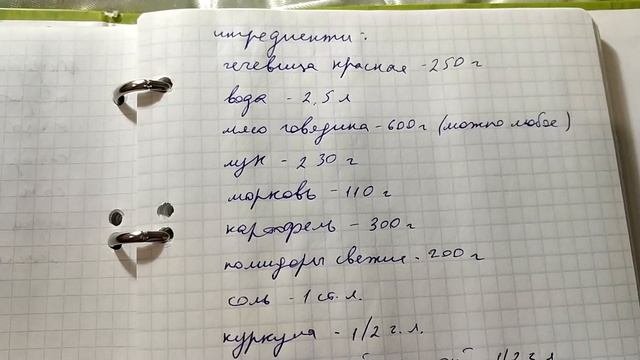 ингредиенти:
чечевица красная - 250 г
вода - 2,5 л
мясо говядина - 600 г (можно любое)
лук - 230 г
морковь - 110 г
картофель - 300 г
помидоры свежие - 200 г
соль - 1 ст. л.
куркума - 1/2 ч. л.
1/2 ч. л.